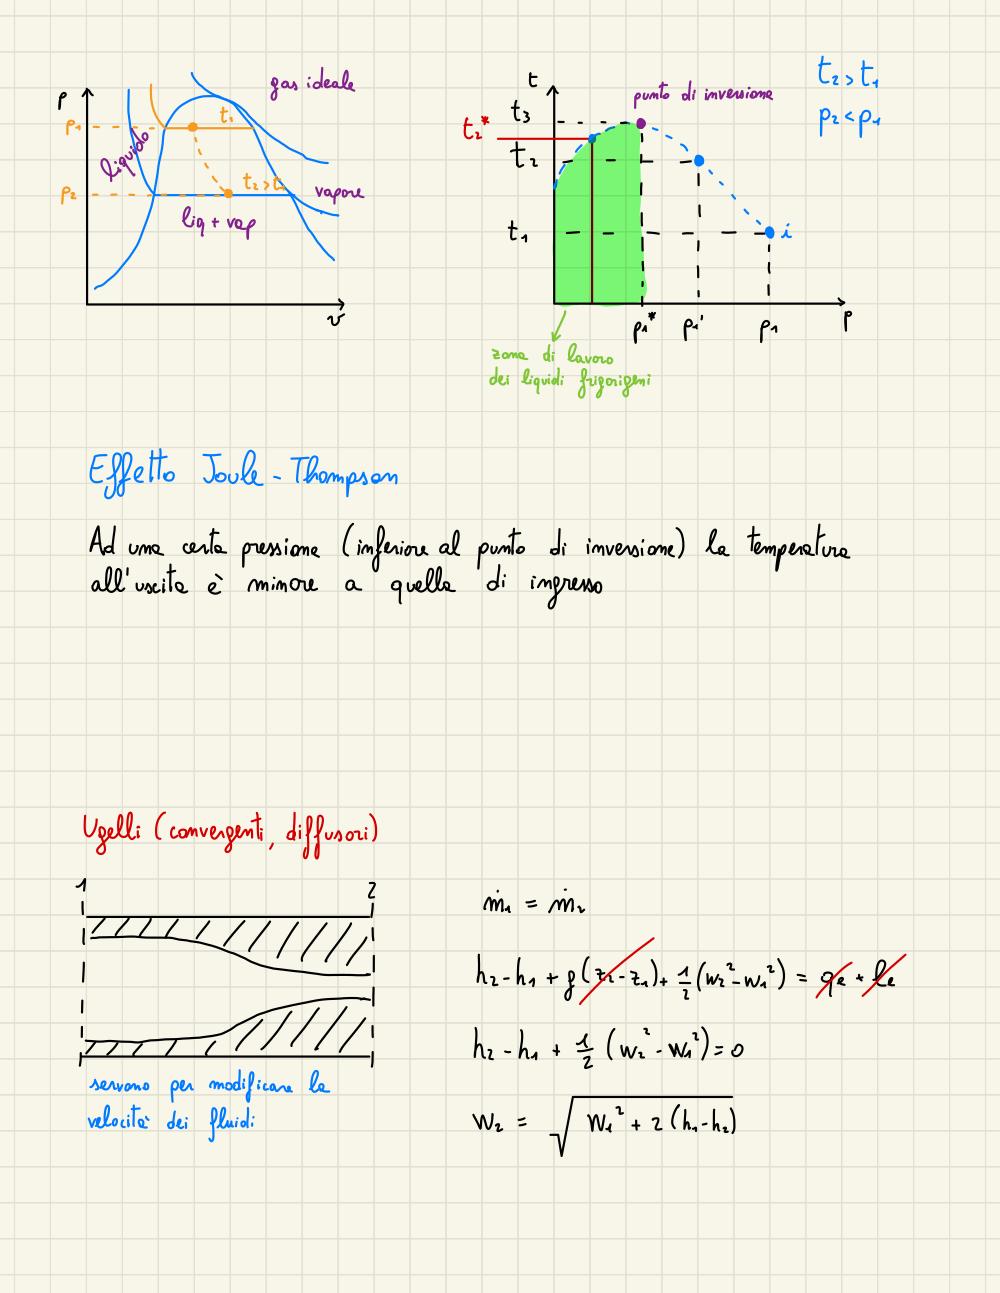 p
gas ideale
p₁
t₁
liquido
p₂
t₂>t₁
vapore
liq + vap
v
t
punto di inversione
t₂>t₁
p₂<p₁
t₃
t₂*
t₂
t₁
i
p₁*
p₁'
p₁
p
zona di lavoro
dei liquidi frigorigeni
Effetto Joule - Thompson
Ad una certa pressione (inferiore al punto di inversione) la temperatura
all'uscita è minore a quella di ingresso
Ugelli (convergenti, diffusori)
1
2
servono per modificare la
velocità dei fluidi
ṁ₁ = ṁ₂
h₂ - h₁ + g(z₂ - z₁) + 1/2 (w₂² - w₁²) = qe + le
h₂ - h₁ + 1/2 (w₂² - w₁²) = 0
w₂ = √(w₁² + 2(h₁ - h₂))